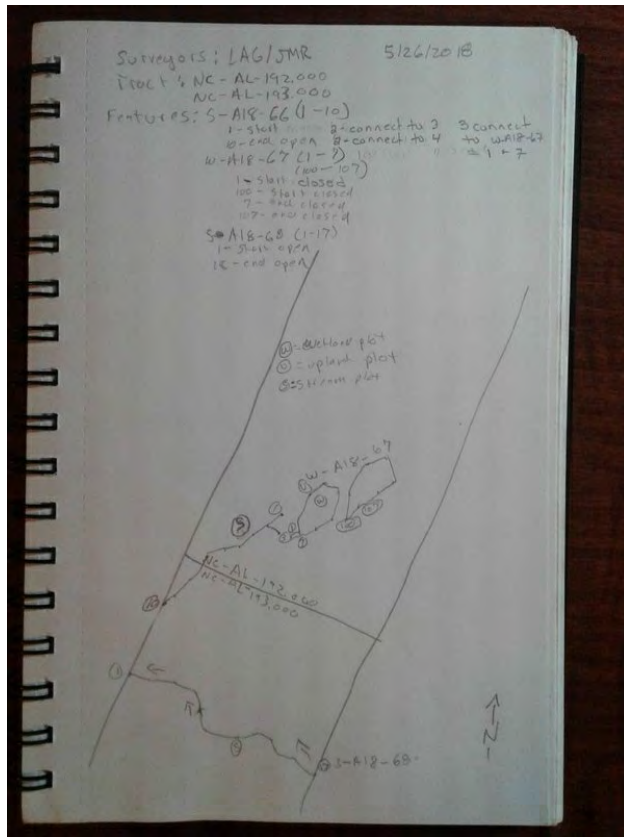 Surveyors: LAG/JMR 5/26/2018
Tract: NC-AL-192.000
NC-AL-193.000
Features: S-A18-66 (1-10)
1-start 2-connect to 3 3 connect
10-end open 2-connect to 4 to W-A18-67
W-A18-67 (1-7) 1 + 7
(100-107)
1-start closed
100-start closed
7-end closed
107-end closed
S-A18-68 (1-17)
1-start open
18-end open
W=wetland plot
U=upland plot
S=stream plot
W-A18-67
U
W
S
1
100
107
10
NC-AL-192.000
NC-AL-193.000
1
S
S-A18-68
N